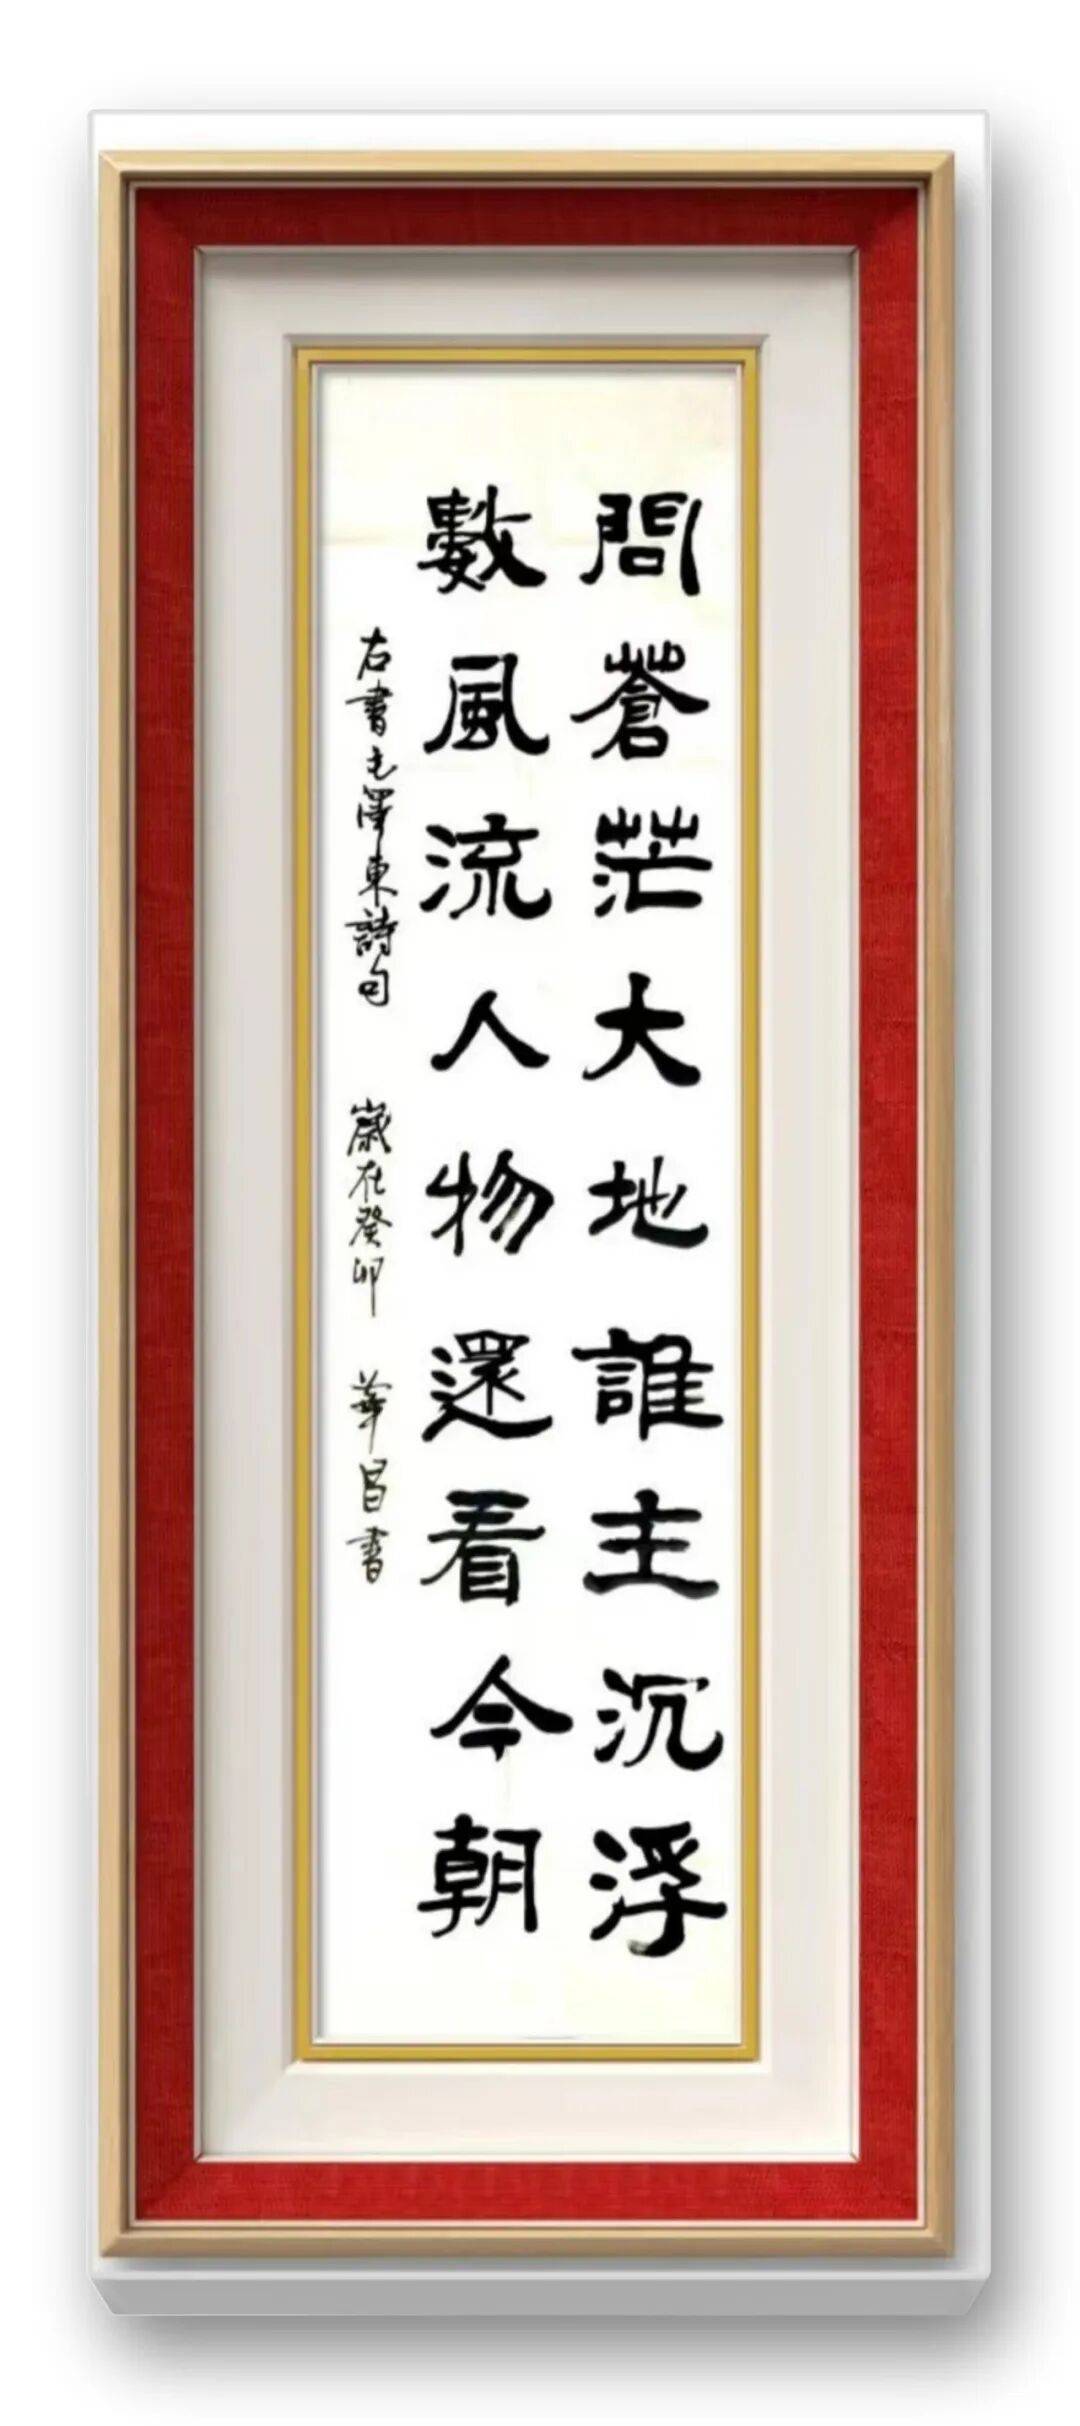 問蒼茫大地誰主沉浮
數風流人物還看今朝
右書毛澤東詩句 歲在癸卯 華昌書